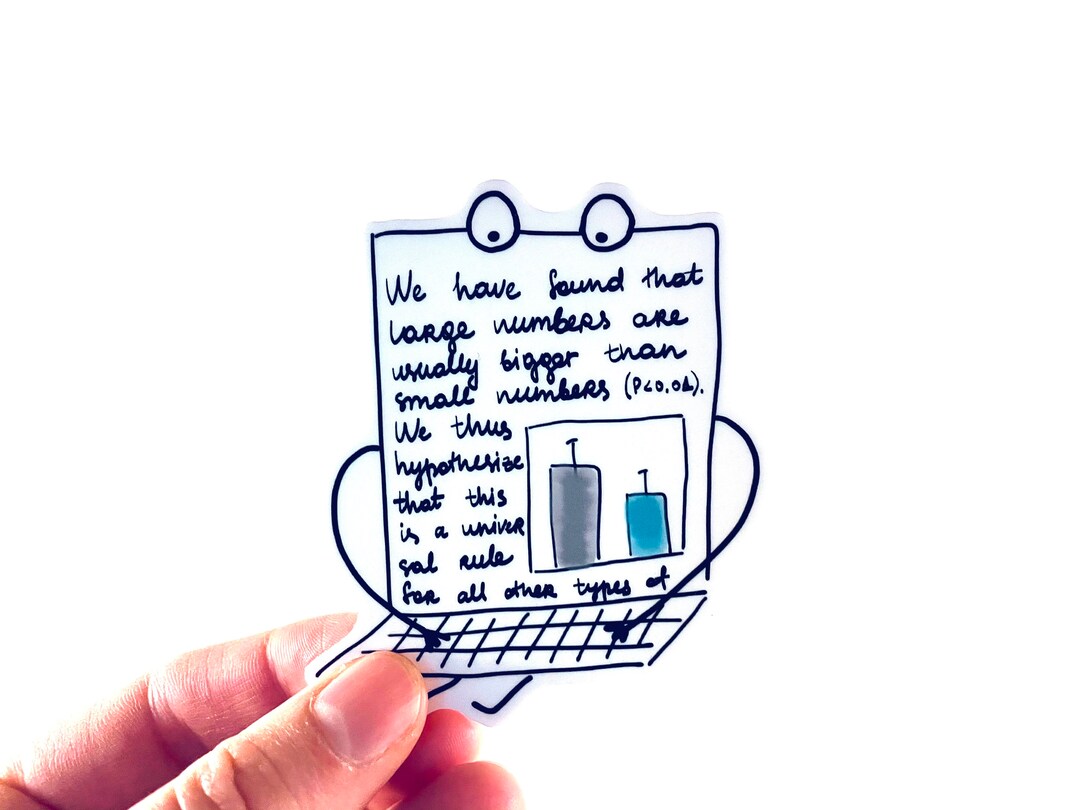 We have found that
large numbers are
usually bigger than
small numbers (P<0.01).
We thus
hypothesize
that this
is a univer
sal rule
for all other types of